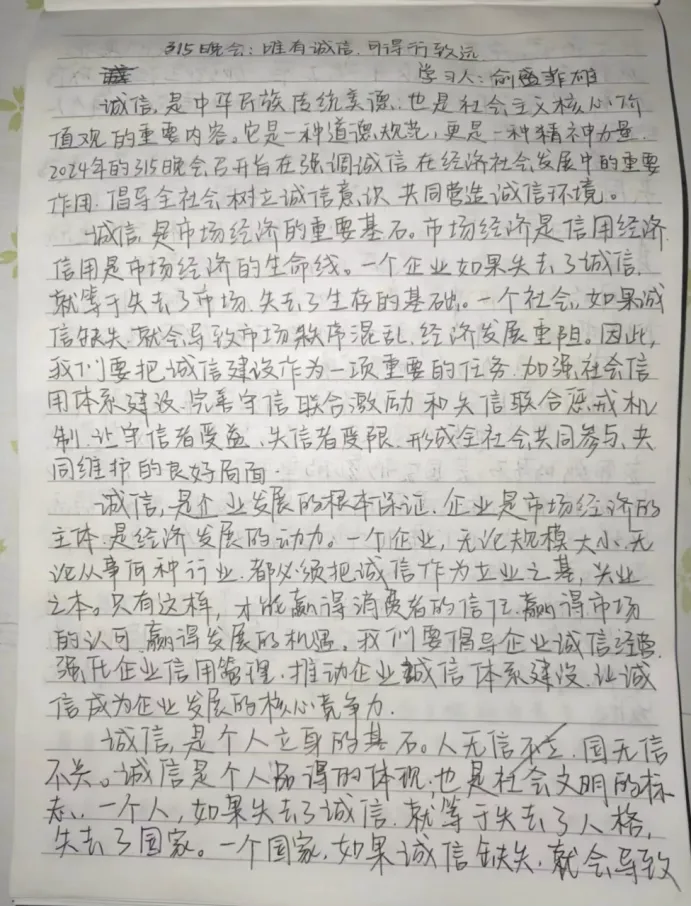 315晚会：唯有诚信,可得行致远
学习人：俞 菲雄
诚信,是中华民族传统美德,也是社会主义核心价
值观的重要内容。它是一种道德规范,更是一种精神力量.
2024年的315晚会召开旨在强调诚信在经济社会发展中的重要
作用,倡导全社会树立诚信意识,共同营造诚信环境。
诚信,是市场经济的重要基石。市场经济是信用经济,
信用是市场经济的生命线。一个企业如果失去了诚信,
就等于失去了市场,失去了生存的基础。一个社会,如果诚
信缺失,就会导致市场秩序混乱,经济发展重阻。因此,
我们要把诚信建设作为一项重要的任务,加强社会信
用体系建设,完善守信联合激励和失信联合惩戒机
制,让守信者受益、失信者受限,形成全社会共同参与、共
同维护的良好局面.
诚信,是企业发展的根本保证.企业是市场经济的
主体,是经济发展的动力。一个企业,无论规模大小,无
论从事何种行业,都必须把诚信作为立业之基,兴业
之本。只有这样,才能赢得消费者的信任,赢得市场
的认可,赢得发展的机遇。我们要倡导企业诚信经营,
强化企业信用管理,推动企业诚信体系建设,让诚
信成为企业发展的核心竞争力.
诚信,是个人立身的基石。人无信不立,国无信
不兴。诚信是个人品得的体现,也是社会文明的标
志.一个人,如果失去了诚信,就等于失去了人格,
失去了国家。一个国家,如果诚信缺失,就会导致